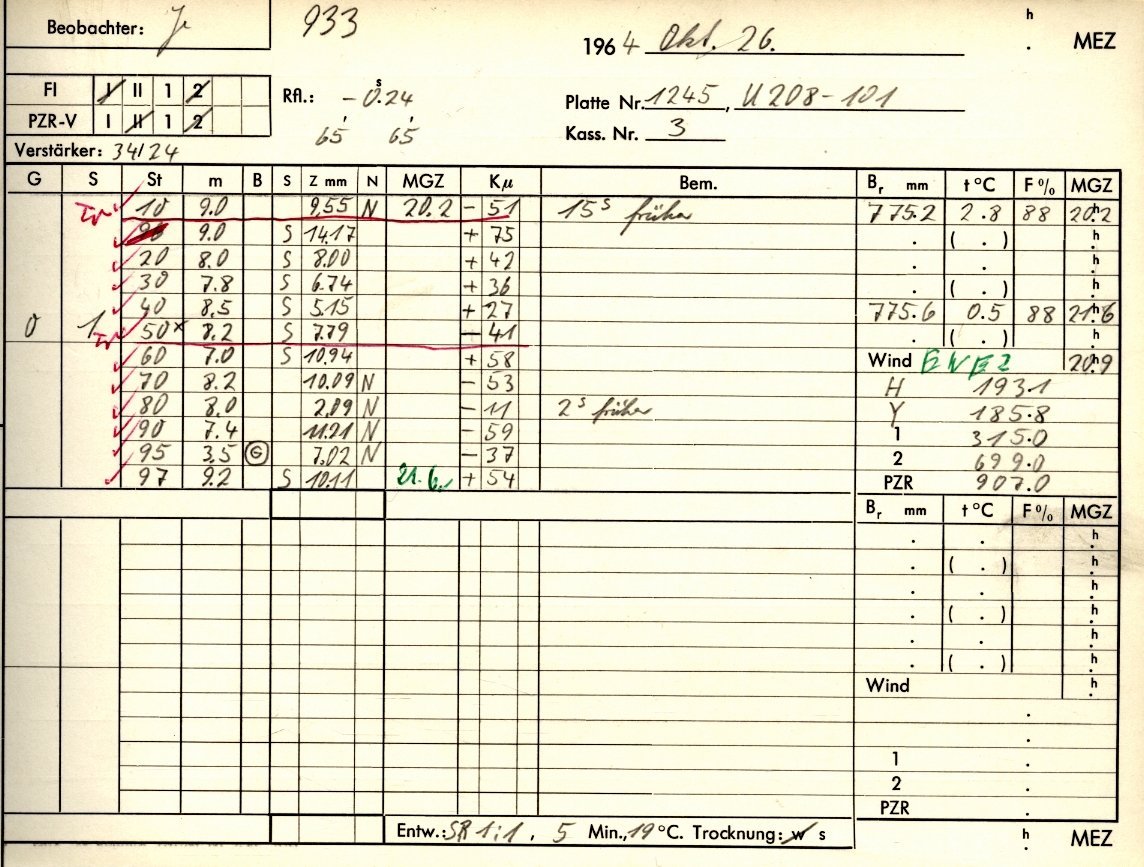 Beobachter: Je 933 h
1964 Okt. 26. . MEZ
FI I II 1 2 Rfl.: - 0.24 s
Platte Nr. 1245, U 208-101
PZR-V I II 1 2 65 65
Kass. Nr. 3
Verstärker: 34/24
G S St m B S Z mm N MGZ Kμ Bem. Br mm t °C F% MGZ
10 9.0 9,55 N 20.2 - 51 15s früher 775.2 2.8 88 20.2 h
9.0 S 14.17 + 75 . ( . ) h
20 8.0 S 8.00 + 42 . . h
30 7.8 S 6.74 + 36 . ( . ) h
40 8,5 S 5.15 + 27 775.6 0.5 88 21.6 h
0 1 50x 8.2 S 7.79 - 41 . ( . ) h
60 7.0 S 10.94 + 58 Wind ENE 2 20.9 h
70 8.2 10.09 N - 53 H 193.1
80 8.0 2.09 N - 11 2s früher Y 185.8
90 7.4 11.21 N - 59 1 315.0
95 3.5 G 7.02 N - 37 2 699.0
97 9.2 S 10.11 21.6 + 54 PZR 907.0
Br mm t °C F% MGZ
. . h
. ( . ) h
. . h
. ( . ) h
. . h
. ( . ) h
Wind h
.
.
1 .
2 .
PZR .
Entw.: SR 1:1, 5 Min., 19 °C. Trocknung: w s h . MEZ